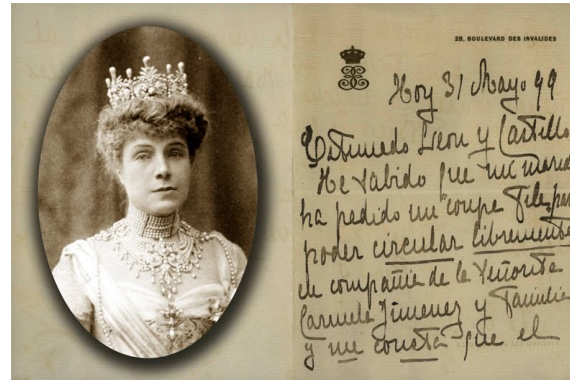 28, BOULEVARD DES INVALIDES
Hoy 31 Mayo 99
Estimado Leon y Castillo
He sabido que mi marid
ha pedido un "coupe file, par
poder circular librement
en compañia de la Señorita
Carmela Jimenez y Familia
y me consta que el